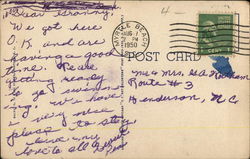 Dear Granny,
We got here
O.K. and are
having a good
time. We are
getting ready
to go swimming
We have
a very nice
place to stay
love to all
MYRTLE BEACH
AUG
PM
1950
POST CARD
Mr & Mrs. G.A.
Route #3
Henderson, N.C.